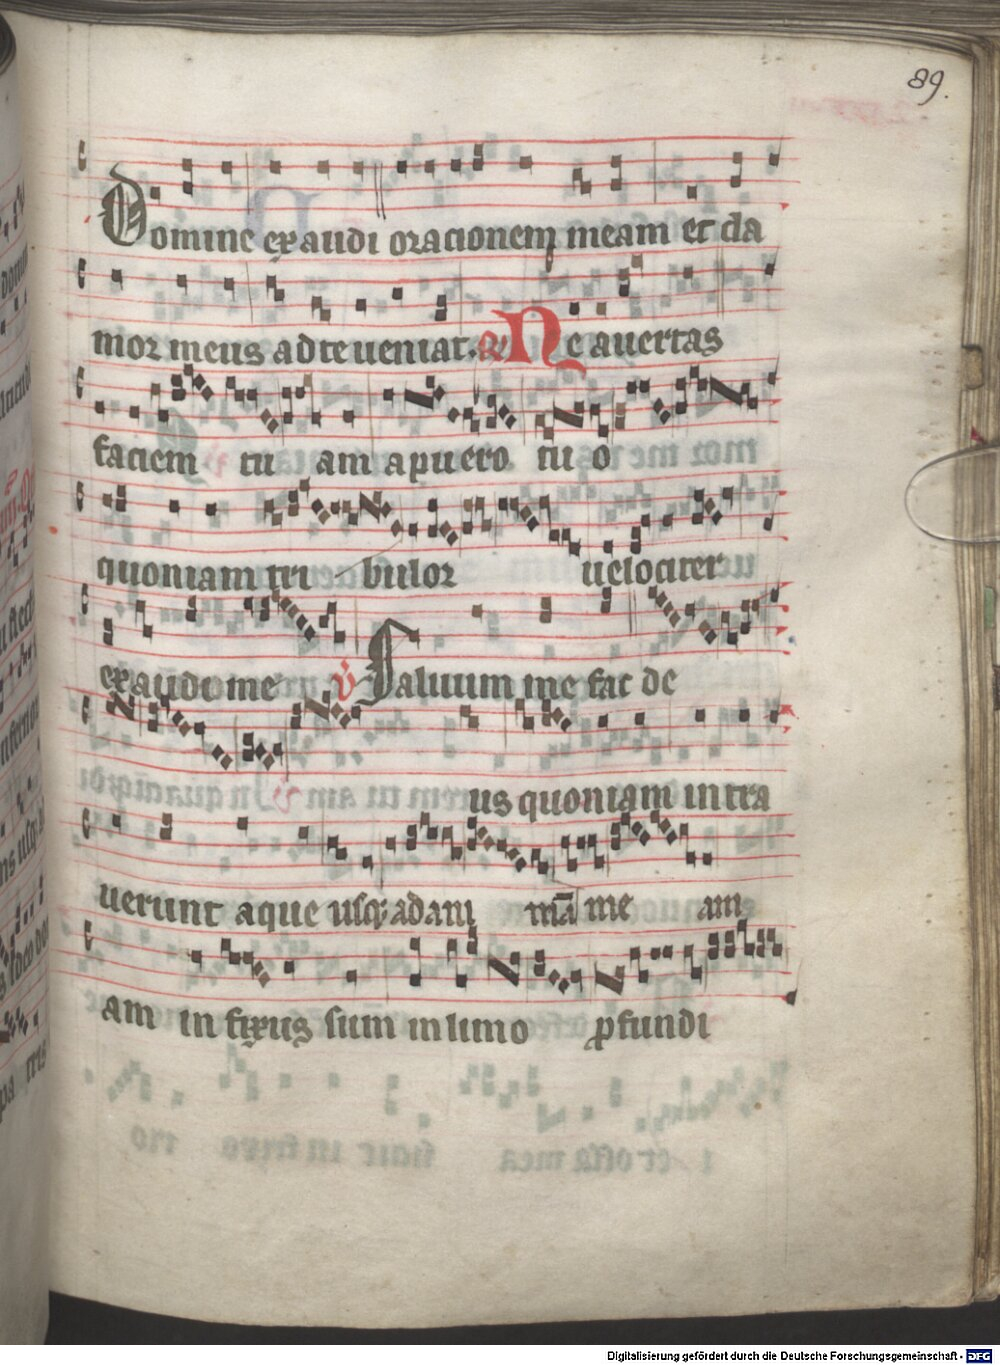 89.
Domine exaudi oracionem meam et cla
mor meus ad te ueniat. Ne auertas
faciem tu am a puero tu o
quoniam tri bulor uelociter
exaudi me v Saluum me fac de
us quoniam intra
uerunt aque usq; ad ani mā me am
am in fixus sum in limo pfundi
Digitalisierung gefördert durch die Deutsche Forschungsgemeinschaft - DFG